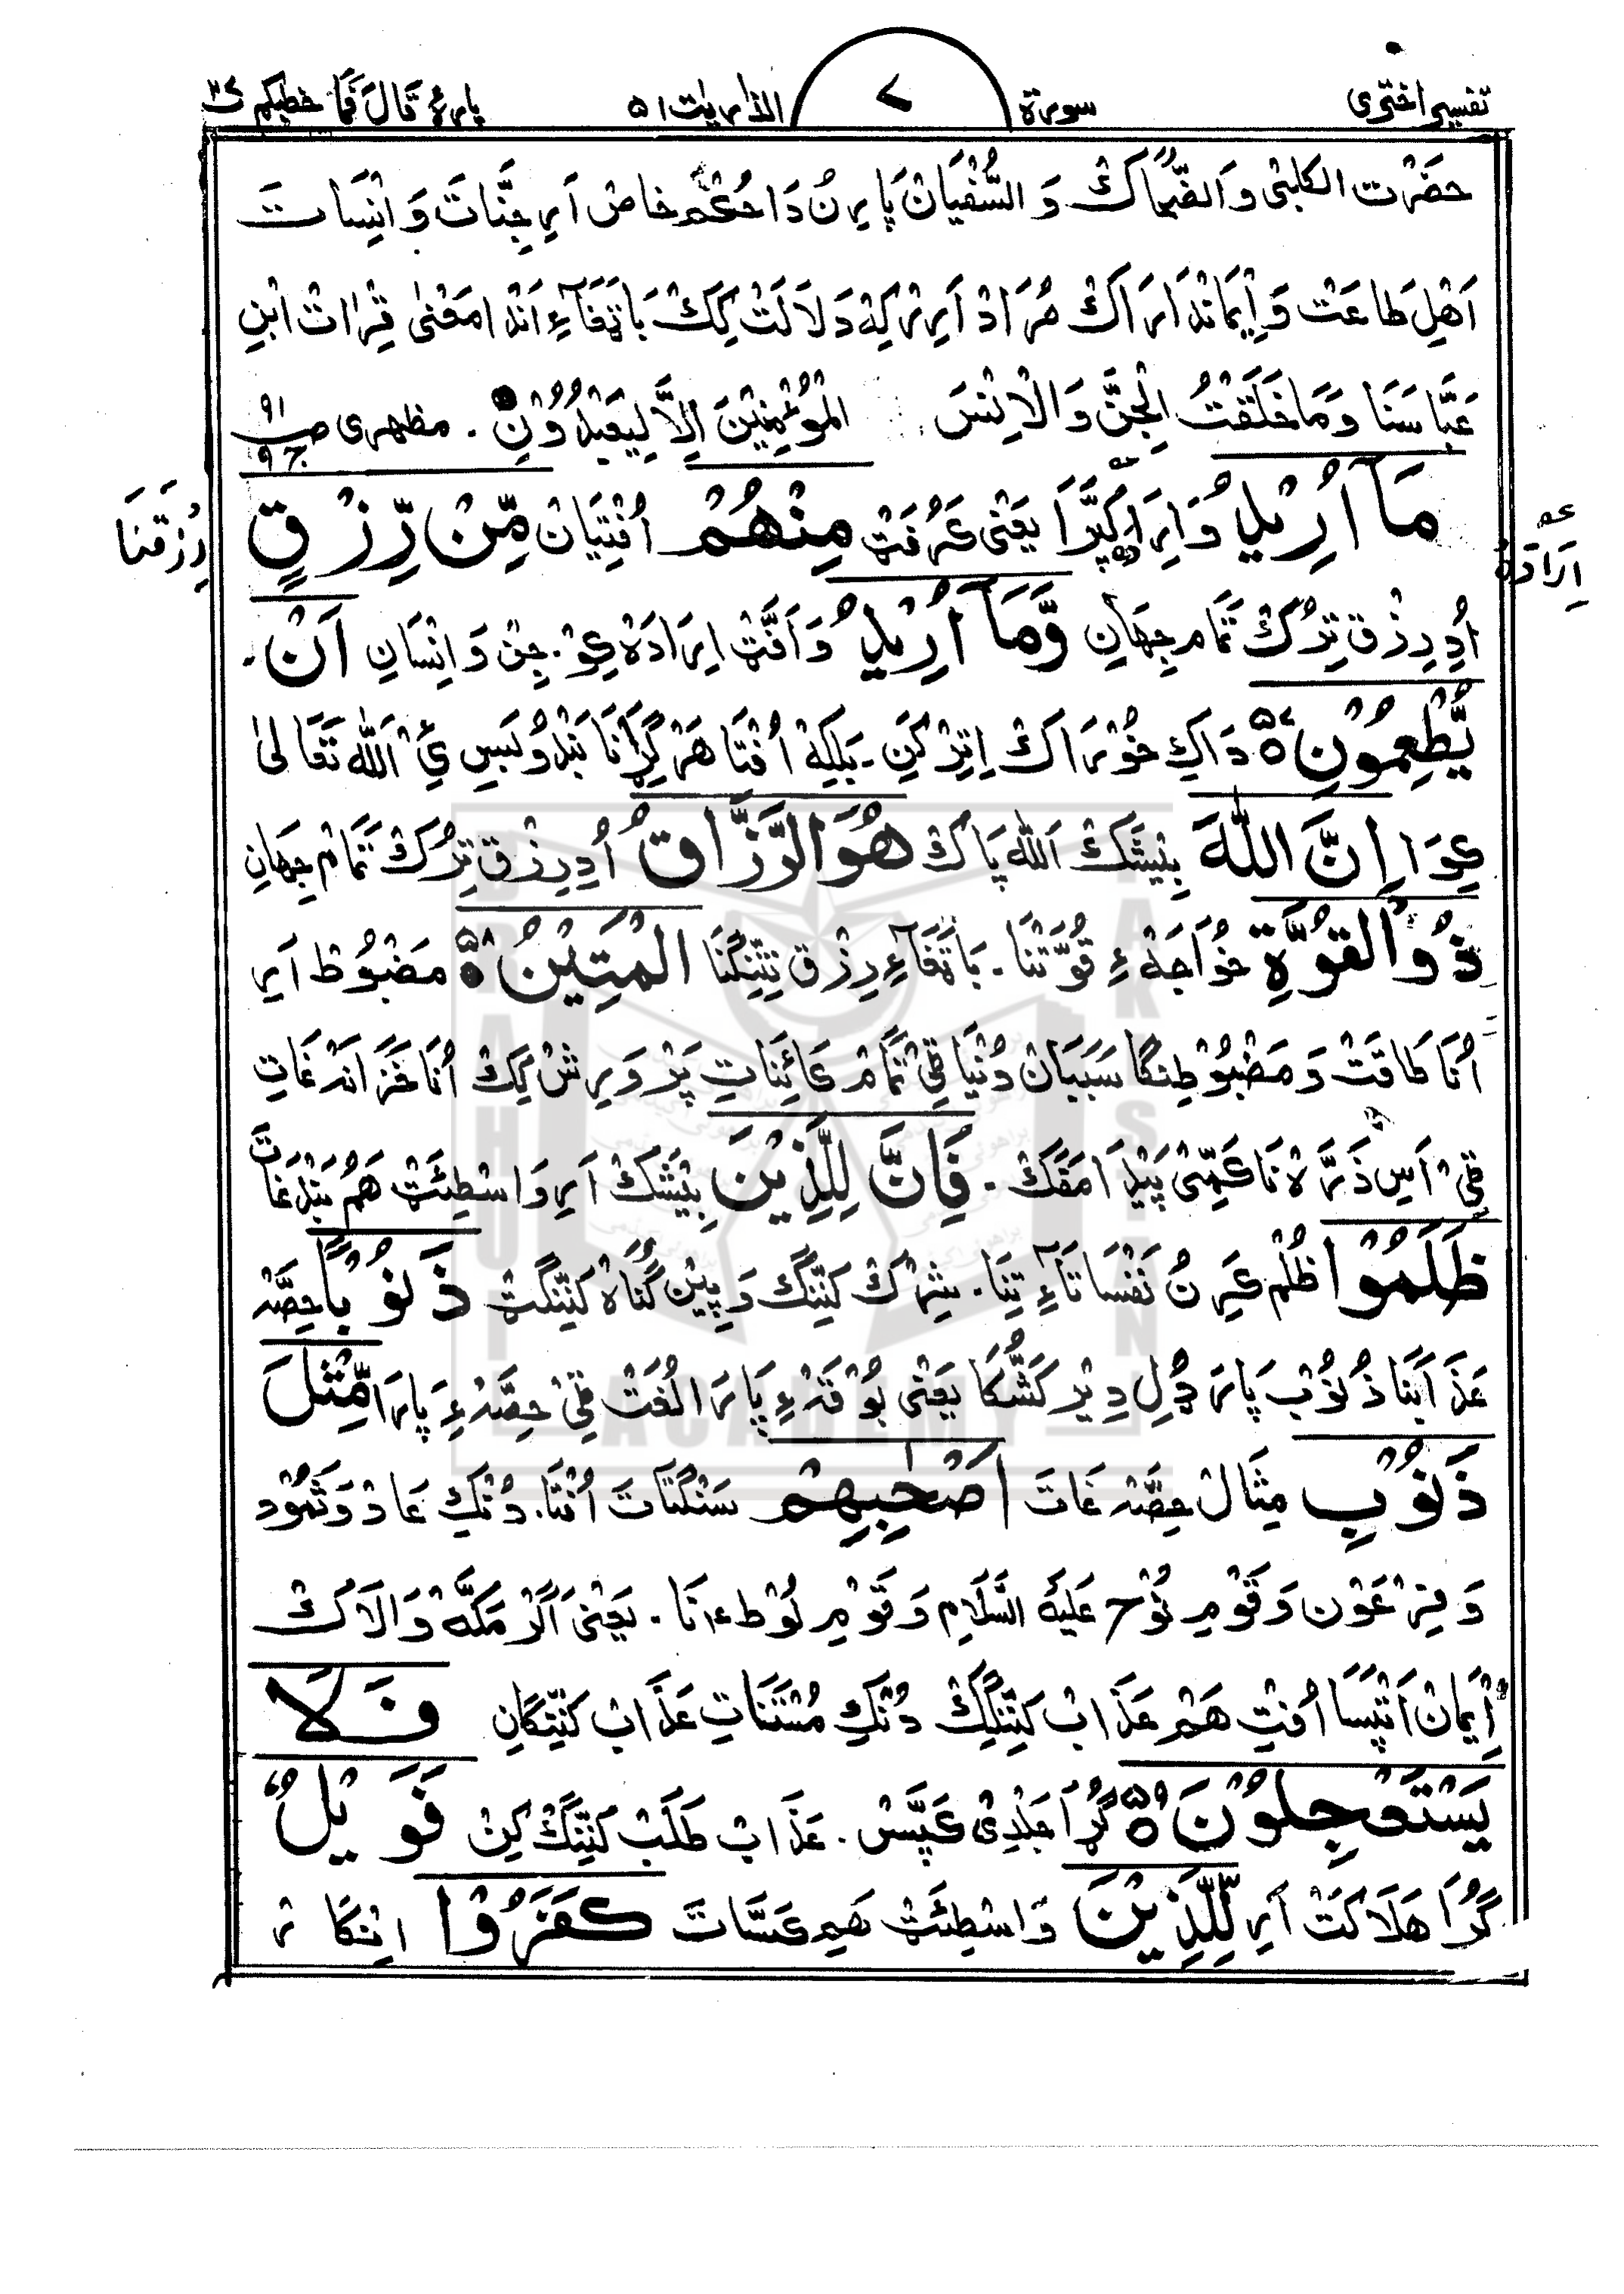 تفسیر اختری سورة ۷ الذاریٰت ۵۱ پارۂ قَالَ فَمَا خطبکم ۲۷
حضَرْت الکلبیْ وَالضّحاکْ وَ السُّفْیَانْ پَارِنُ دَا حُکم خاصْ اَرِ جِنَّاتَ وَ انْسَاتَ
اَهْلِ طاعَتْ وَ اِیْمَانْدَارَاکْ مُرَادْ اَرِر کِهْ دَلَالَتْ کِکْ بَاتْهَاءِ اَنْدَا مَعْنٰی قِرْاتْ ابْنِ
عَبَّاسَنَا وَمَا خَلَقْتُ الْجِنَّ وَالْاِنْسَ الْمُؤْمِنِیْنَ اِلَّا لِیَعْبُدُوْنِ . مظهری صـ ۹۱ ج ۹
مَآ اُرِیْدُ وَ اِرَادَه یَعْنی مِنْهُمْ اُفْتِیَانْ مِّنْ رِّزْقٍ
رِزقنَا
اِرَادَهٔ
اُدِ رِزْق تِرُکْ تَمَام جِهَانِ وَّمَآ اُرِیْدُ وَ اَفَّٹ اِرَادَهْ جِنْ وَ اِنْسَانِ اَنْ .
یُّطْعِمُوْنِ ۵۷ دَاکِ خُوْرَاکْ اِتِرْ کَنِ . بَلکِهْ اُفْتَا هَرْ بَنْدَو بَسِ ئِیْ اَللّٰه تَعَالٰی
اِنَّ اللّٰهَ بِیْشَکْ اَللّٰه پَاکْ هُوَالرَّزَّاقُ اُدِ رِزْق تِرُکْ تَمَامْ جِهَانِ
ذُوالْقُوَّةِ خُوَاجَهْ ءِ قُوَّتْنَا . بَاتْهَاءِ رِزْق تِنِنْگنَا الْمَتِیْنُ ۵۸ مَضْبُوْط اَرِ
اُنَا طَاقَتْ وَ مَضْبُوْطِنگا سَبَبَانْ دُنْیَا ٹِیْ تَمَامْ کَائِنَاتِ پَرْوَرِشْ کِکْ اُنَا خَزَانَه غَاتِ
ٹِیْ اَسِ ذَرَّه نَا کَمِیْ پَیْدَا مَفَکْ . فَاِنَّ لِلَّذِیْنَ بِیْشَکْ اَرِ وَاسْطِئَٹ هَمُ بَنْدَغَاتَ
ظَلَمُوْا ظُلْم کَرِنُ نَفْسَاتَآءِ تِنَا . شِرْک کَنِّنْگ وَ پِیْن گُنَاهْ کَنِّنْگَٹ ذَنُوْبًا حِصَّه
عَذَابْنَا ذُنُوْب پَارَ دُلِ دِیْر کَشُّکَا یَعْنٰی بُوْقَهْ ءِ پَارَ الُغَتْ ٹِیْ حِصَّه ءِ پَارَا مِّثْلَ
ذَنُوْبِ مِثَالْ حِصَّه غَاتَ اَصْحٰبِهِمْ سَنْگَتَاتَ اُفْتَا . دُنْکِ عَاد وَ ثَمُوْد
وَ فِرْعَوْن وَ قَوْمِ نُوْح عَلَیْهِ السَّلَام وَ قَوْمِ لُوْط ؑ نَا . یَعْنٰی اَگَرْ مَکَّهْ وَالَاکْ
اِیْمَانْ اَتَپَسَا اُفْتِ هَمْ عَذَابْ کَنِّنْگِکْ دُنْکِ مُسْتَنَاتِ عَذَابْ کَنِّنْگَانِ فَلَا
یَسْتَعْجِلُوْنَ ۵۹ گُڑَا جَلْدِیْ کَپَّسْ . عَذَابْ طَلَبْ کَنِّنْگ کِنْ فَوَیْلٌ
گُڑَا هَلَاکَتْ اَرِ لِّلَّذِیْنَ وَاسْطِئَٹ هَم کَسَّاتَ کَفَرُوْا اِنْکَار
BRAHUI ACADEMY PAKISTAN